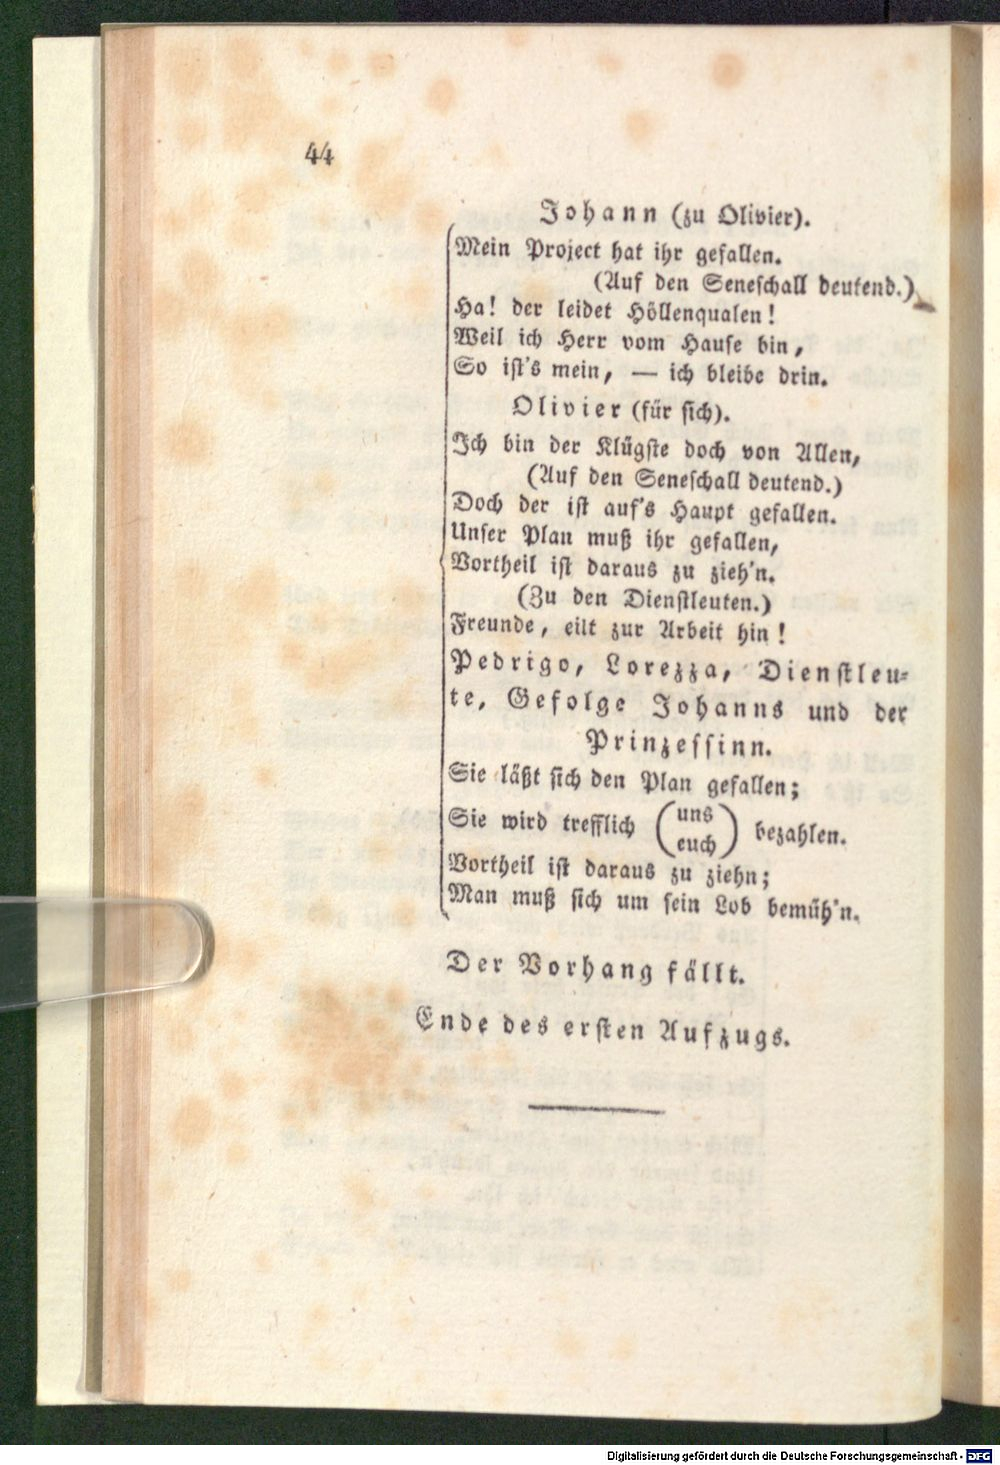 44
Johann (zu Olivier).
Mein Project hat ihr gefallen.
(Auf den Seneschall deutend.)
Ha! der leidet Höllenqualen!
Weil ich Herr vom Hause bin,
So ist's mein, — ich bleibe drin.
Olivier (für sich).
Ich bin der Klügste doch von Allen,
(Auf den Seneschall deutend.)
Doch der ist auf's Haupt gefallen.
Unser Plan muß ihr gefallen,
Vortheil ist daraus zu zieh'n.
(Zu den Dienstleuten.)
Freunde, eilt zur Arbeit hin!
Pedrigo, Lorezza, Dienstleu-
te, Gefolge Johanns und der
Prinzessinn.
Sie läßt sich den Plan gefallen;
Sie wird trefflich (uns
euch) bezahlen.
Vortheil ist daraus zu ziehn;
Man muß sich um sein Lob bemüh'n.
Der Vorhang fällt.
Ende des ersten Aufzugs.
Digitalisierung gefördert durch die Deutsche Forschungsgemeinschaft - DFG